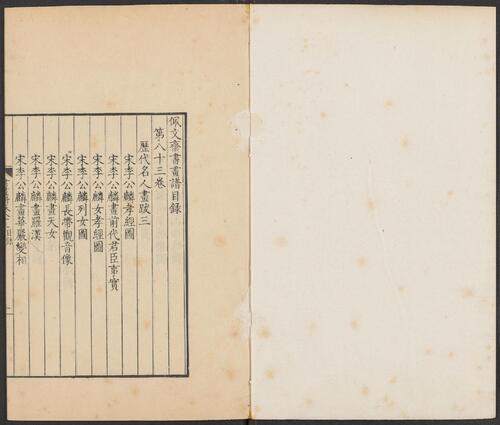 佩文齋書畫譜目錄
第八十三卷
歷代名人畫跋三
宋李公麟孝經圖
宋李公麟畫前代君臣事實
宋李公麟女孝經圖
宋李公麟列女圖
宋李公麟長帶觀音像
宋李公麟畫天女
宋李公麟畫羅漢
宋李公麟畫華嚴變相